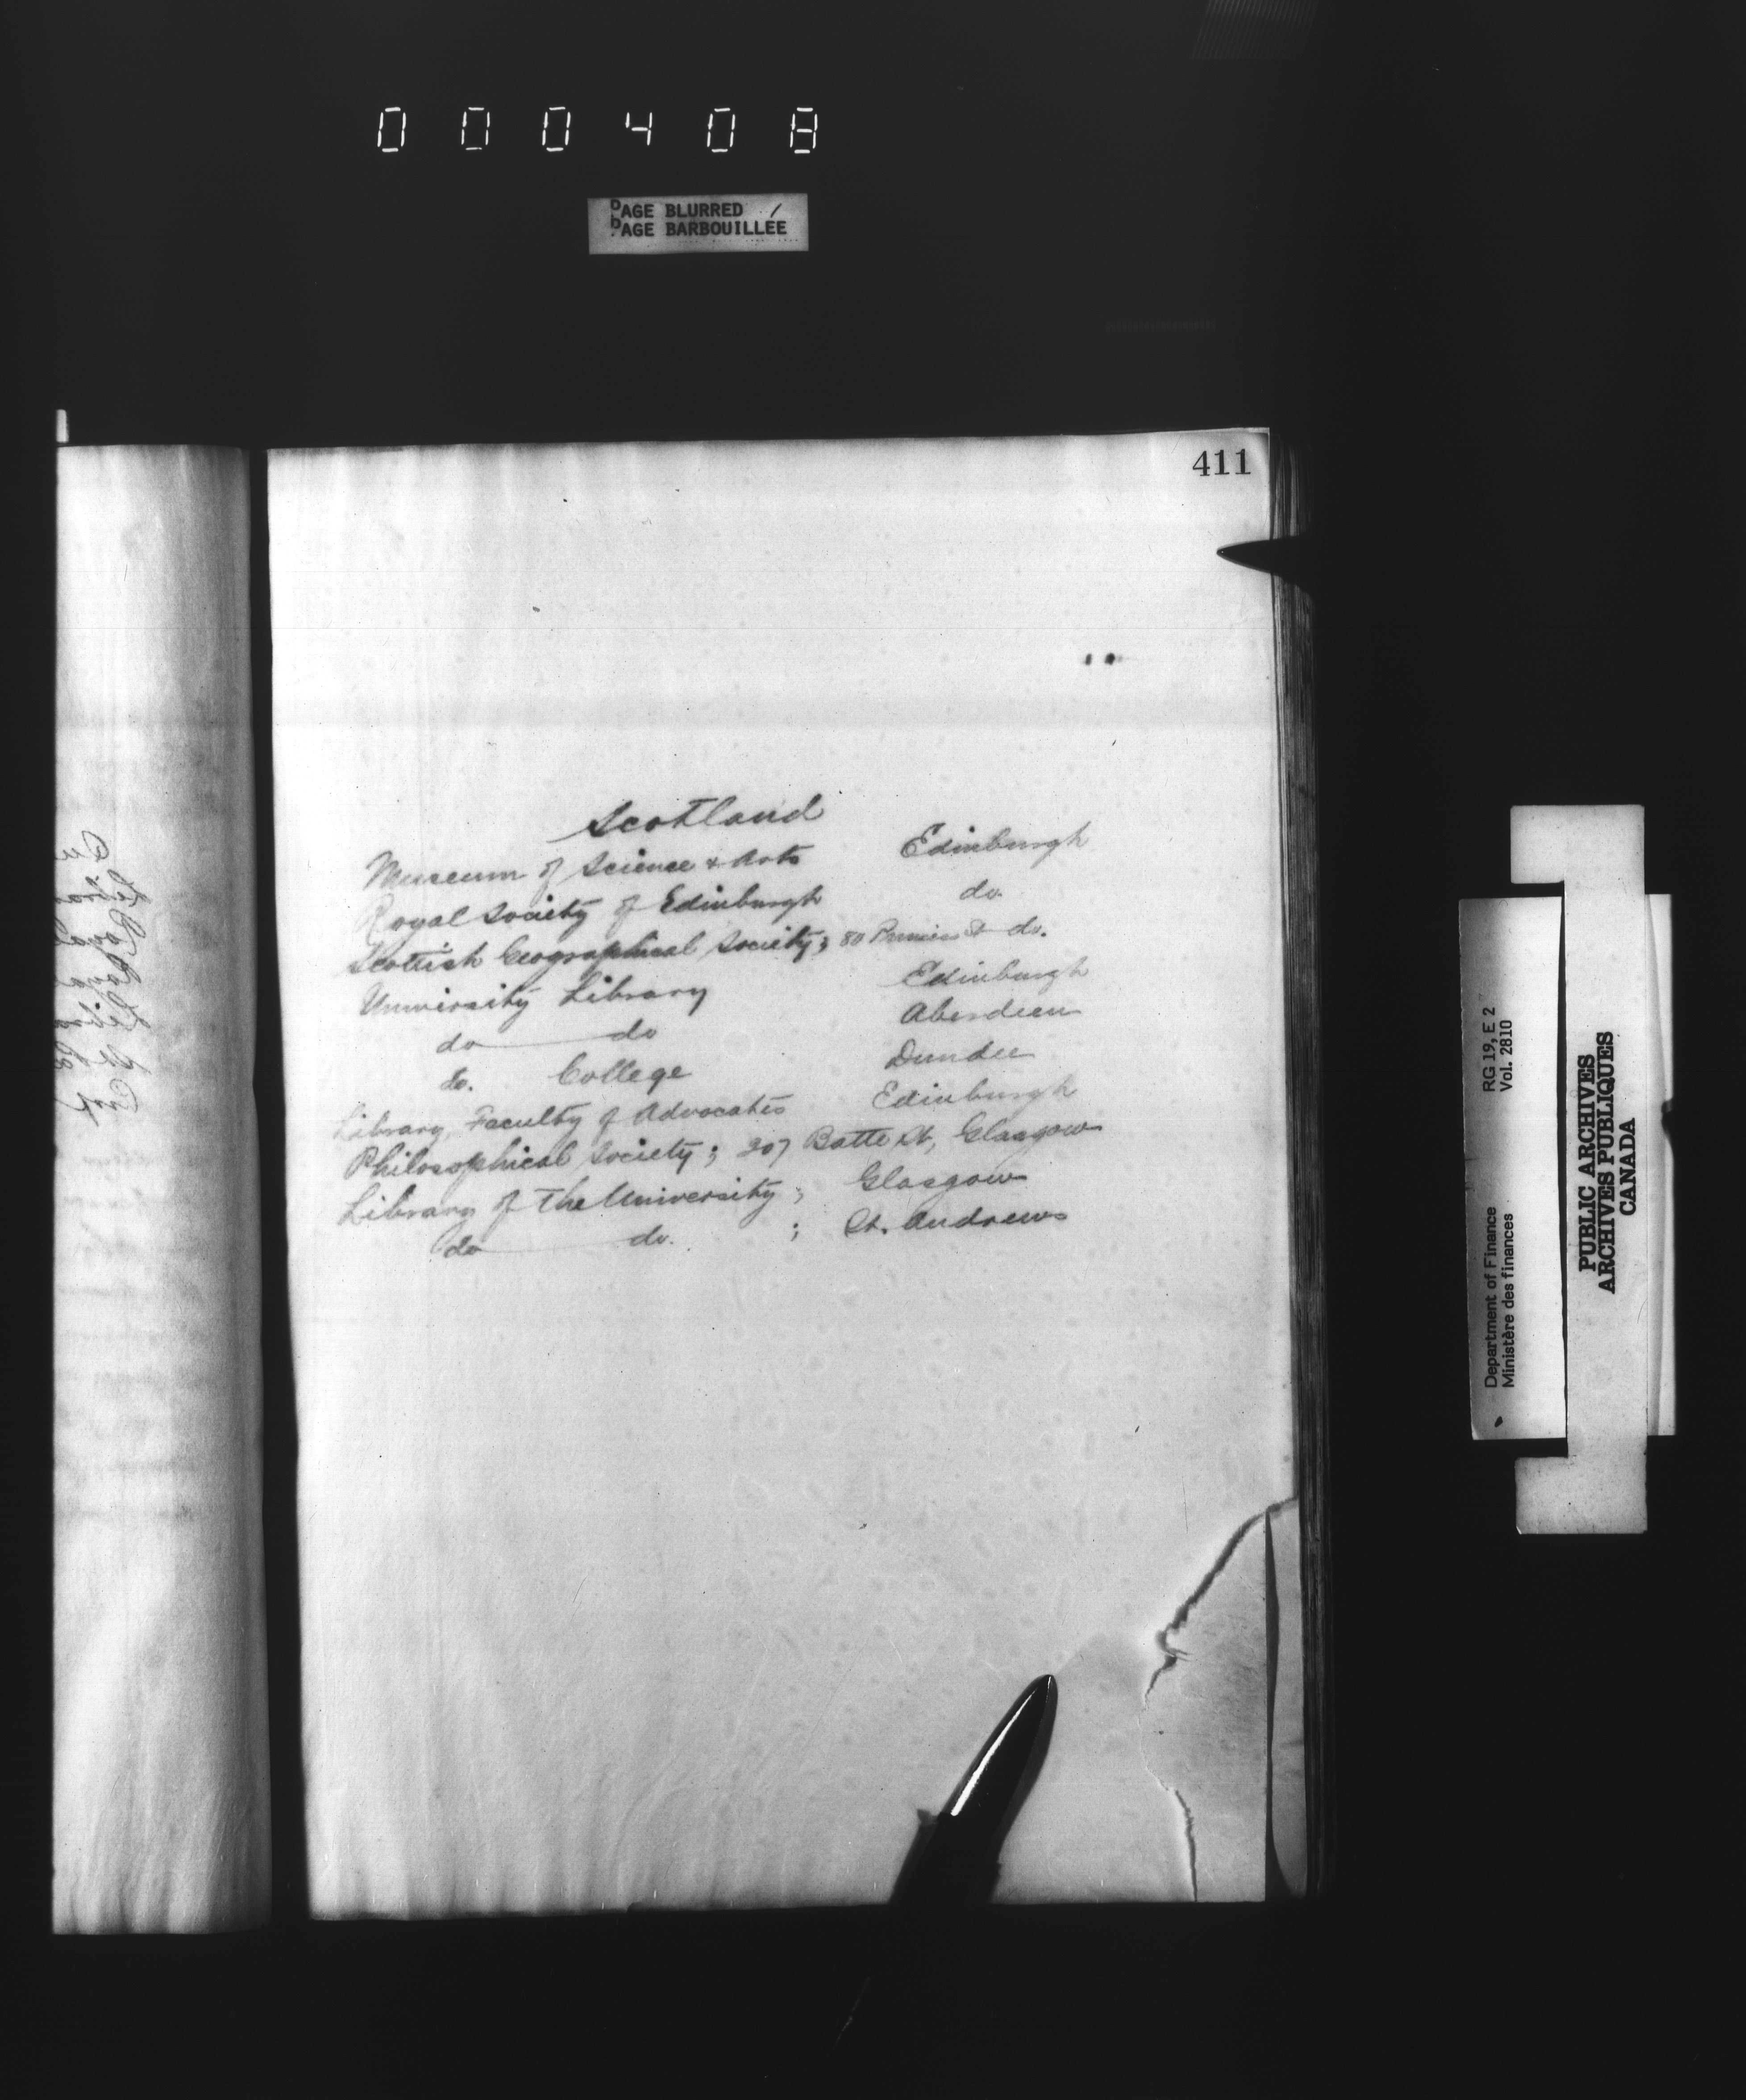 000408
PAGE BLURRED
PAGE BARBOUILLÉE
411
Scotland
Museum of Science & Arts Edinburgh
Royal Society of Edinburgh do.
Scottish Geographical Society; 80 St do.
University Library Edinburgh
do do Aberdeen
do. College Dundee
Library, Faculty of Advocates Edinburgh
Philosophical Society; 207 St, Glasgow
Library of the University; Glasgow
do do. ; St. Andrews
Department of Finance RG 19, E 2
Ministère des finances Vol. 2810
PUBLIC ARCHIVES
ARCHIVES PUBLIQUES
CANADA